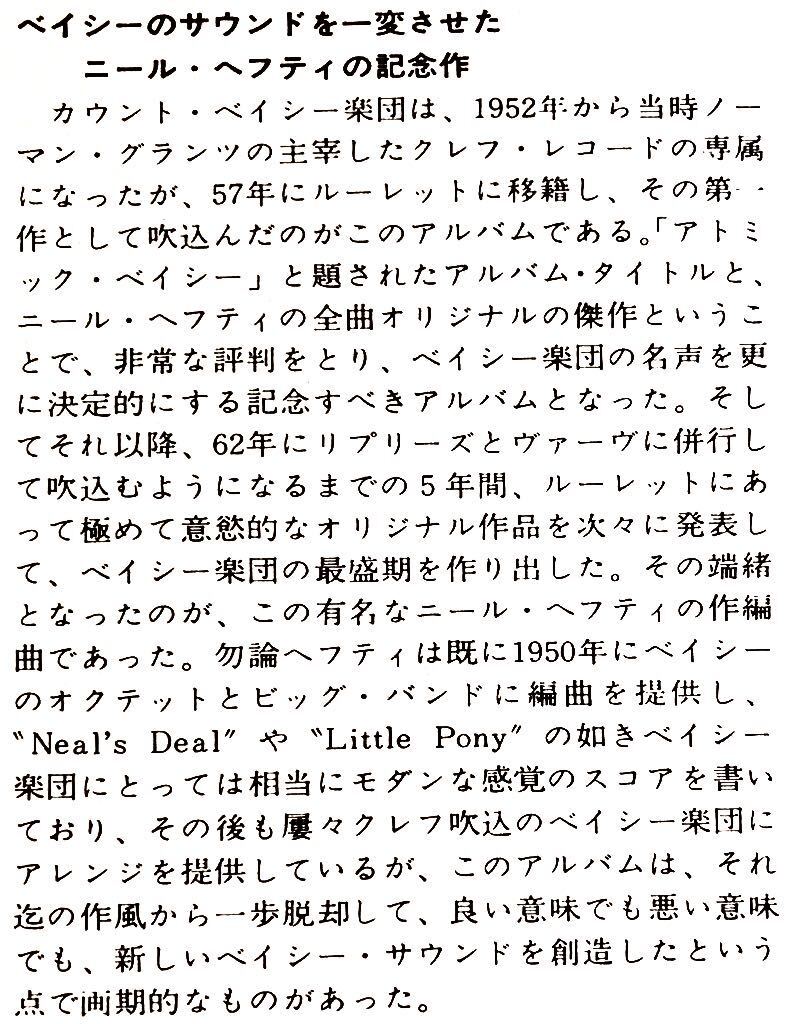 ベイシーのサウンドを一変させた
ニール・ヘフティの記念作
カウント・ベイシー楽団は、1952年から当時ノー
マン・グランツの主宰したクレフ・レコードの専属
になったが、57年にルーレットに移籍し、その第一
作として吹込んだのがこのアルバムである。「アトミ
ック・ベイシー」と題されたアルバム・タイトルと、
ニール・ヘフティの全曲オリジナルの傑作というこ
とで、非常な評判をとり、ベイシー楽団の名声を更
に決定的にする記念すべきアルバムとなった。そし
てそれ以降、62年にリプリーズとヴァーヴに併行し
て吹込むようになるまでの5年間、ルーレットにあ
って極めて意慾的なオリジナル作品を次々に発表し
て、ベイシー楽団の最盛期を作り出した。その端緒
となったのが、この有名なニール・ヘフティの作編
曲であった。勿論ヘフティは既に1950年にベイシー
のオクテットとビッグ・バンドに編曲を提供し、
〝Neal's Deal〞や〝Little Pony〞の如きベイシー
楽団にとっては相当にモダンな感覚のスコアを書い
ており、その後も屢々クレフ吹込のベイシー楽団に
アレンジを提供しているが、このアルバムは、それ
迄の作風から一歩脱却して、良い意味でも悪い意味
でも、新しいベイシー・サウンドを創造したという
点で画期的なものがあった。